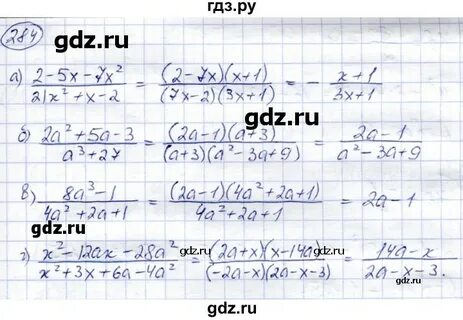 гдз.ру
284
gdz.ru gdz.ru
а) \frac{2-5x-7x²}{21x²+x-2} = \frac{(2-7x)(x+1)}{(7x-2)(3x+1)} = - \frac{x+1}{3x+1}
gdz.ru gdz.ru
б) \frac{2a²+5a-3}{a³+27} = \frac{(2a-1)(a+3)}{(a+3)(a²-3a+9)} = \frac{2a-1}{a²-3a+9}
gdz.ru
в) \frac{8a³-1}{4a²+2a+1} = \frac{(2a-1)(4a²+2a+1)}{4a²+2a+1} = 2a-1
gdz.ru gdz.ru
г) \frac{x²-12ax-28a²}{x²+3x+6a-4a²} = \frac{(2a+x)(x-14a)}{(-2a-x)(2a-x-3)} = \frac{14a-x}{2a-x-3}.
gdz.ru